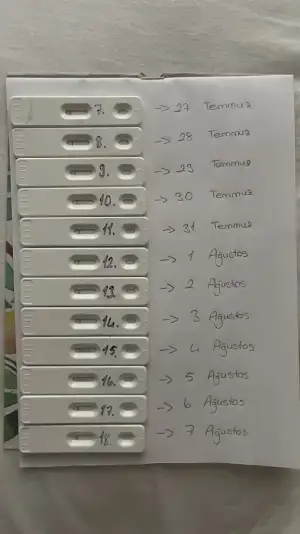 7. -> 27 Temmuz
8. -> 28 Temmuz
9. -> 29 Temmuz
10. -> 30 Temmuz
11. -> 31 Temmuz
12. -> 1 Ağustos
13. -> 2 Ağustos
14. -> 3 Ağustos
15. -> 4 Ağustos
16. -> 5 Ağustos
17. -> 6 Ağustos
18. -> 7 Ağustos